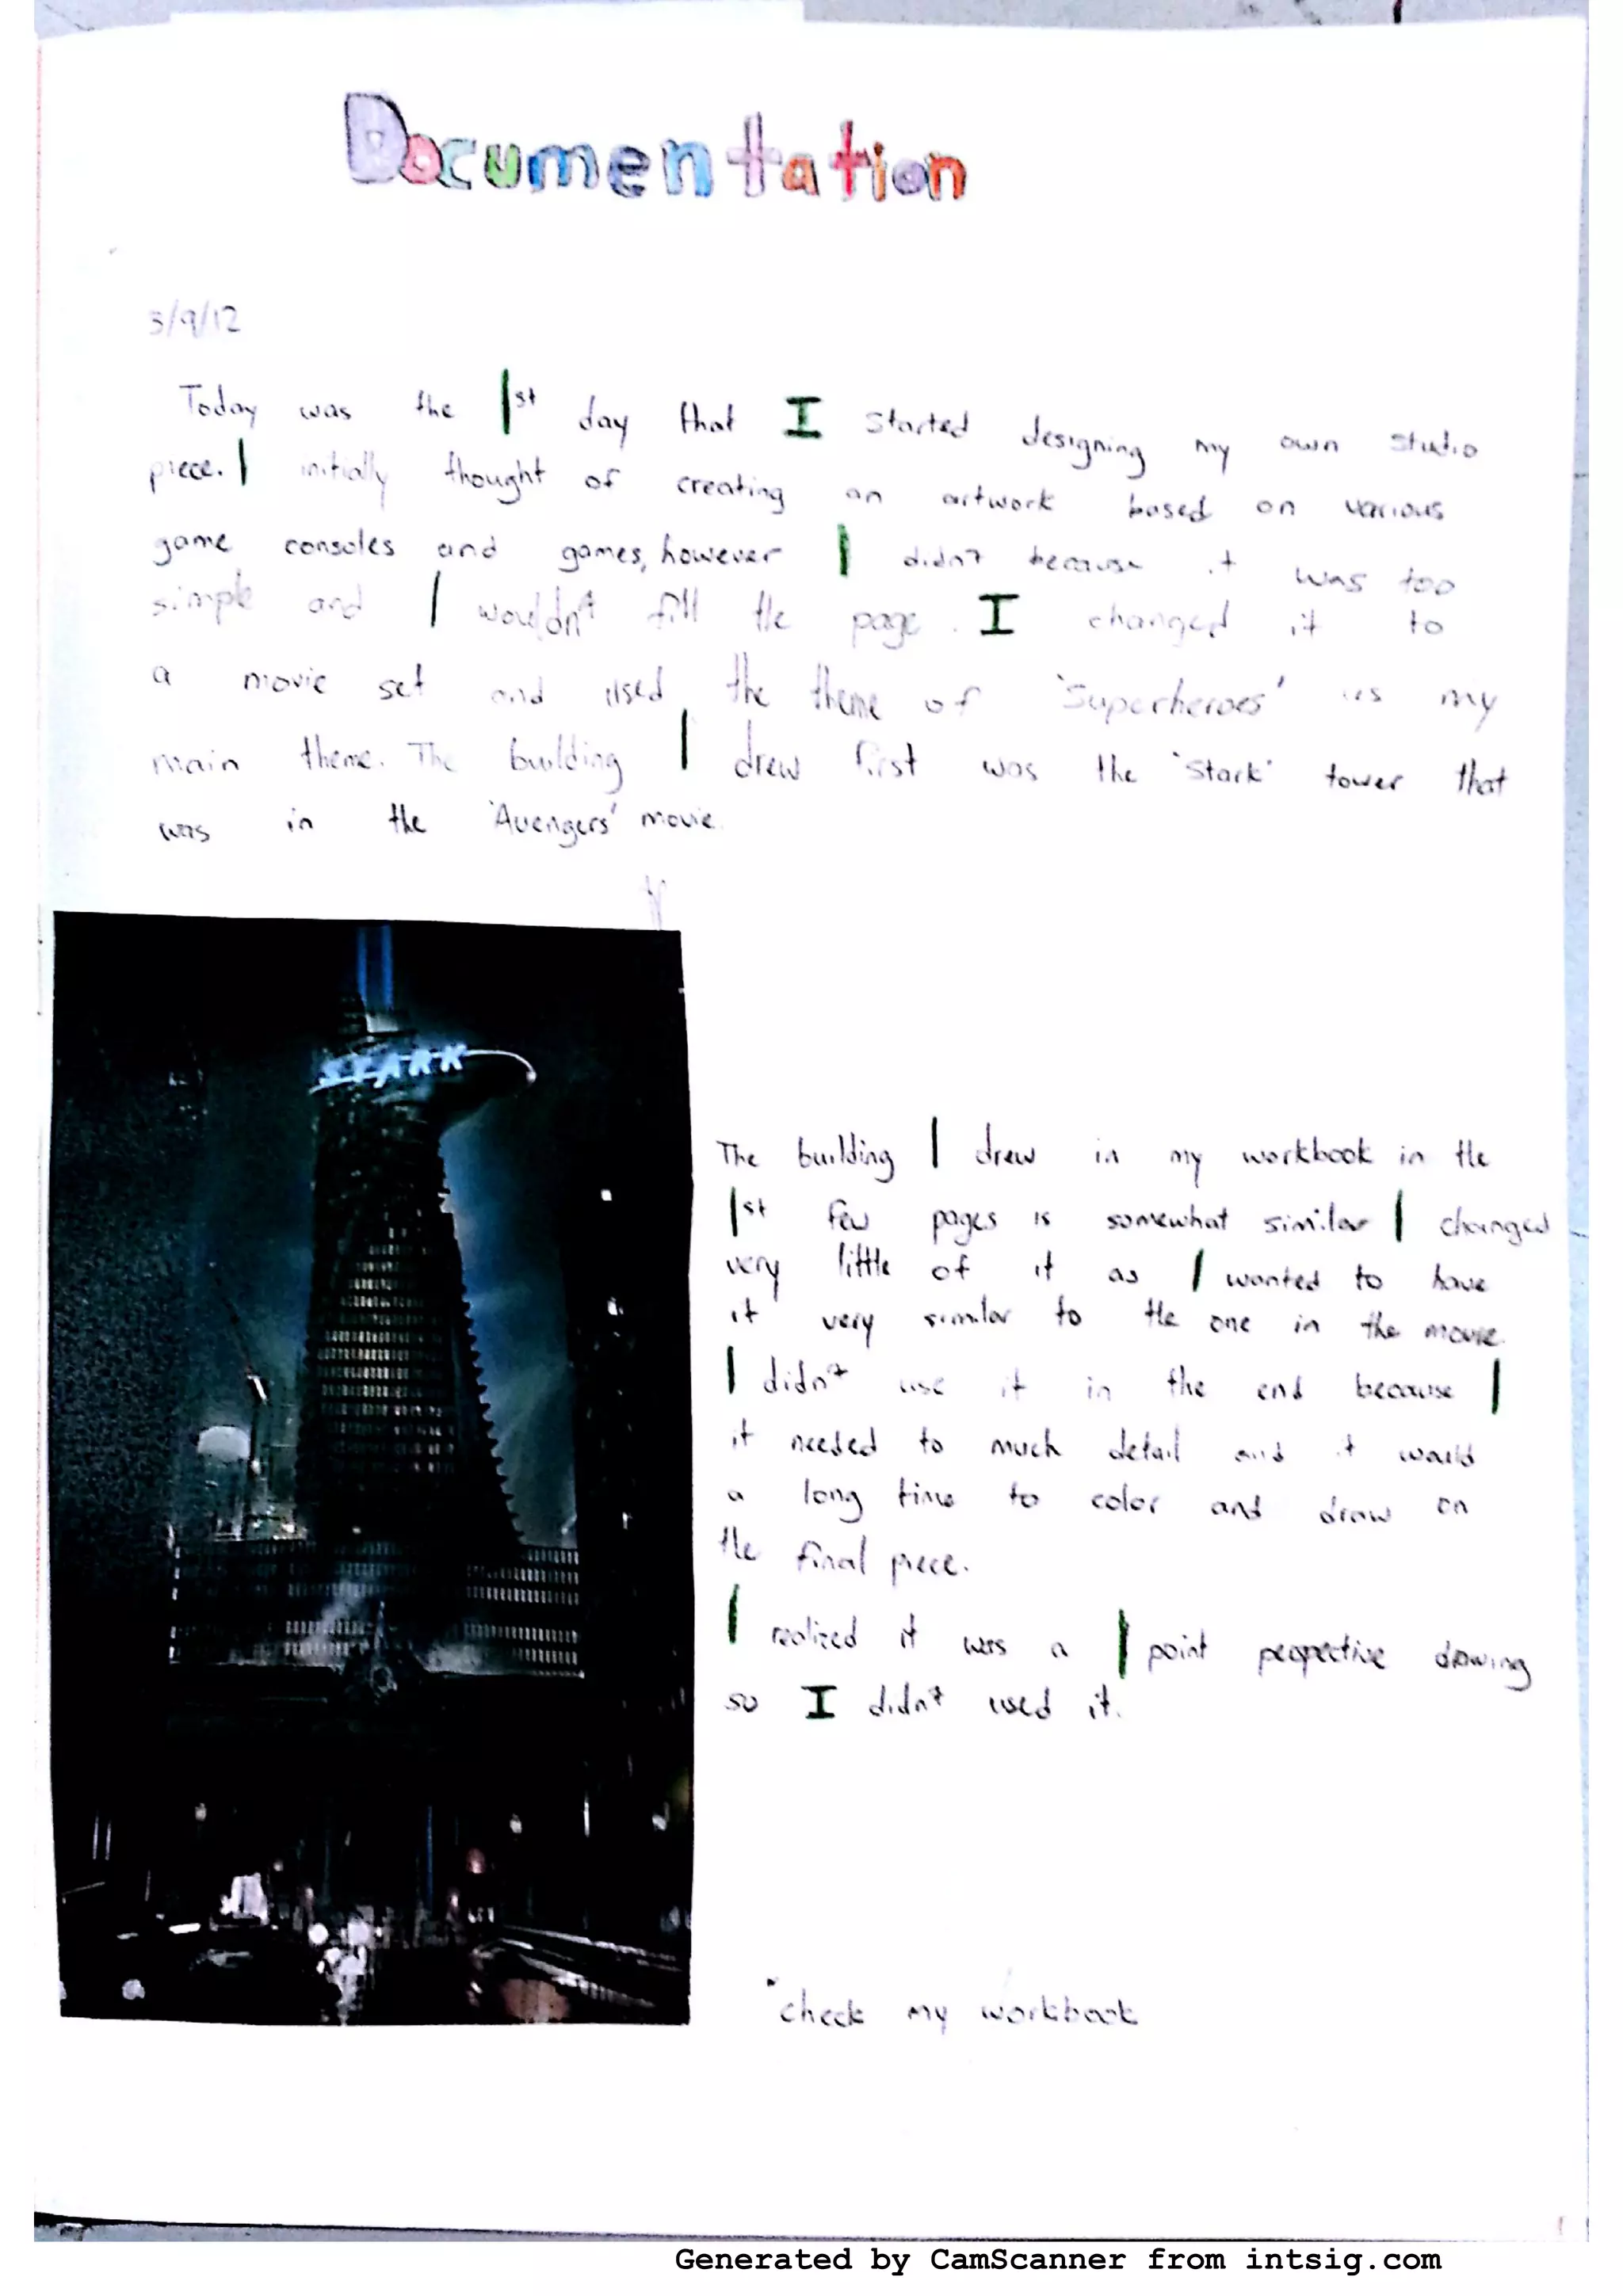 Documentation
3/9/12
Today was the 1st day that I started designing my own studio
piece. I initially thought of creating an artwork based on various
game consoles and games, however I didn't because it was too
simple and I wouldn't fill the page. I changed it to
a movie set and used the theme of 'Superheroes' as my
main theme. The building I drew first was the 'Stark' tower that
was in the 'Avengers' movie.
STARK
The building I drew in my workbook in the
1st few pages is somewhat similar I changed
very little of it as I wanted to have
it very similar to the one in the movie.
I didn't use it in the end because I
it needed to much detail and it would
a long time to color and draw on
the final piece.
I realized it was a 1 point perspective drawing
so I didn't used it.
*check my workbook
Generated by CamScanner from intsig.com